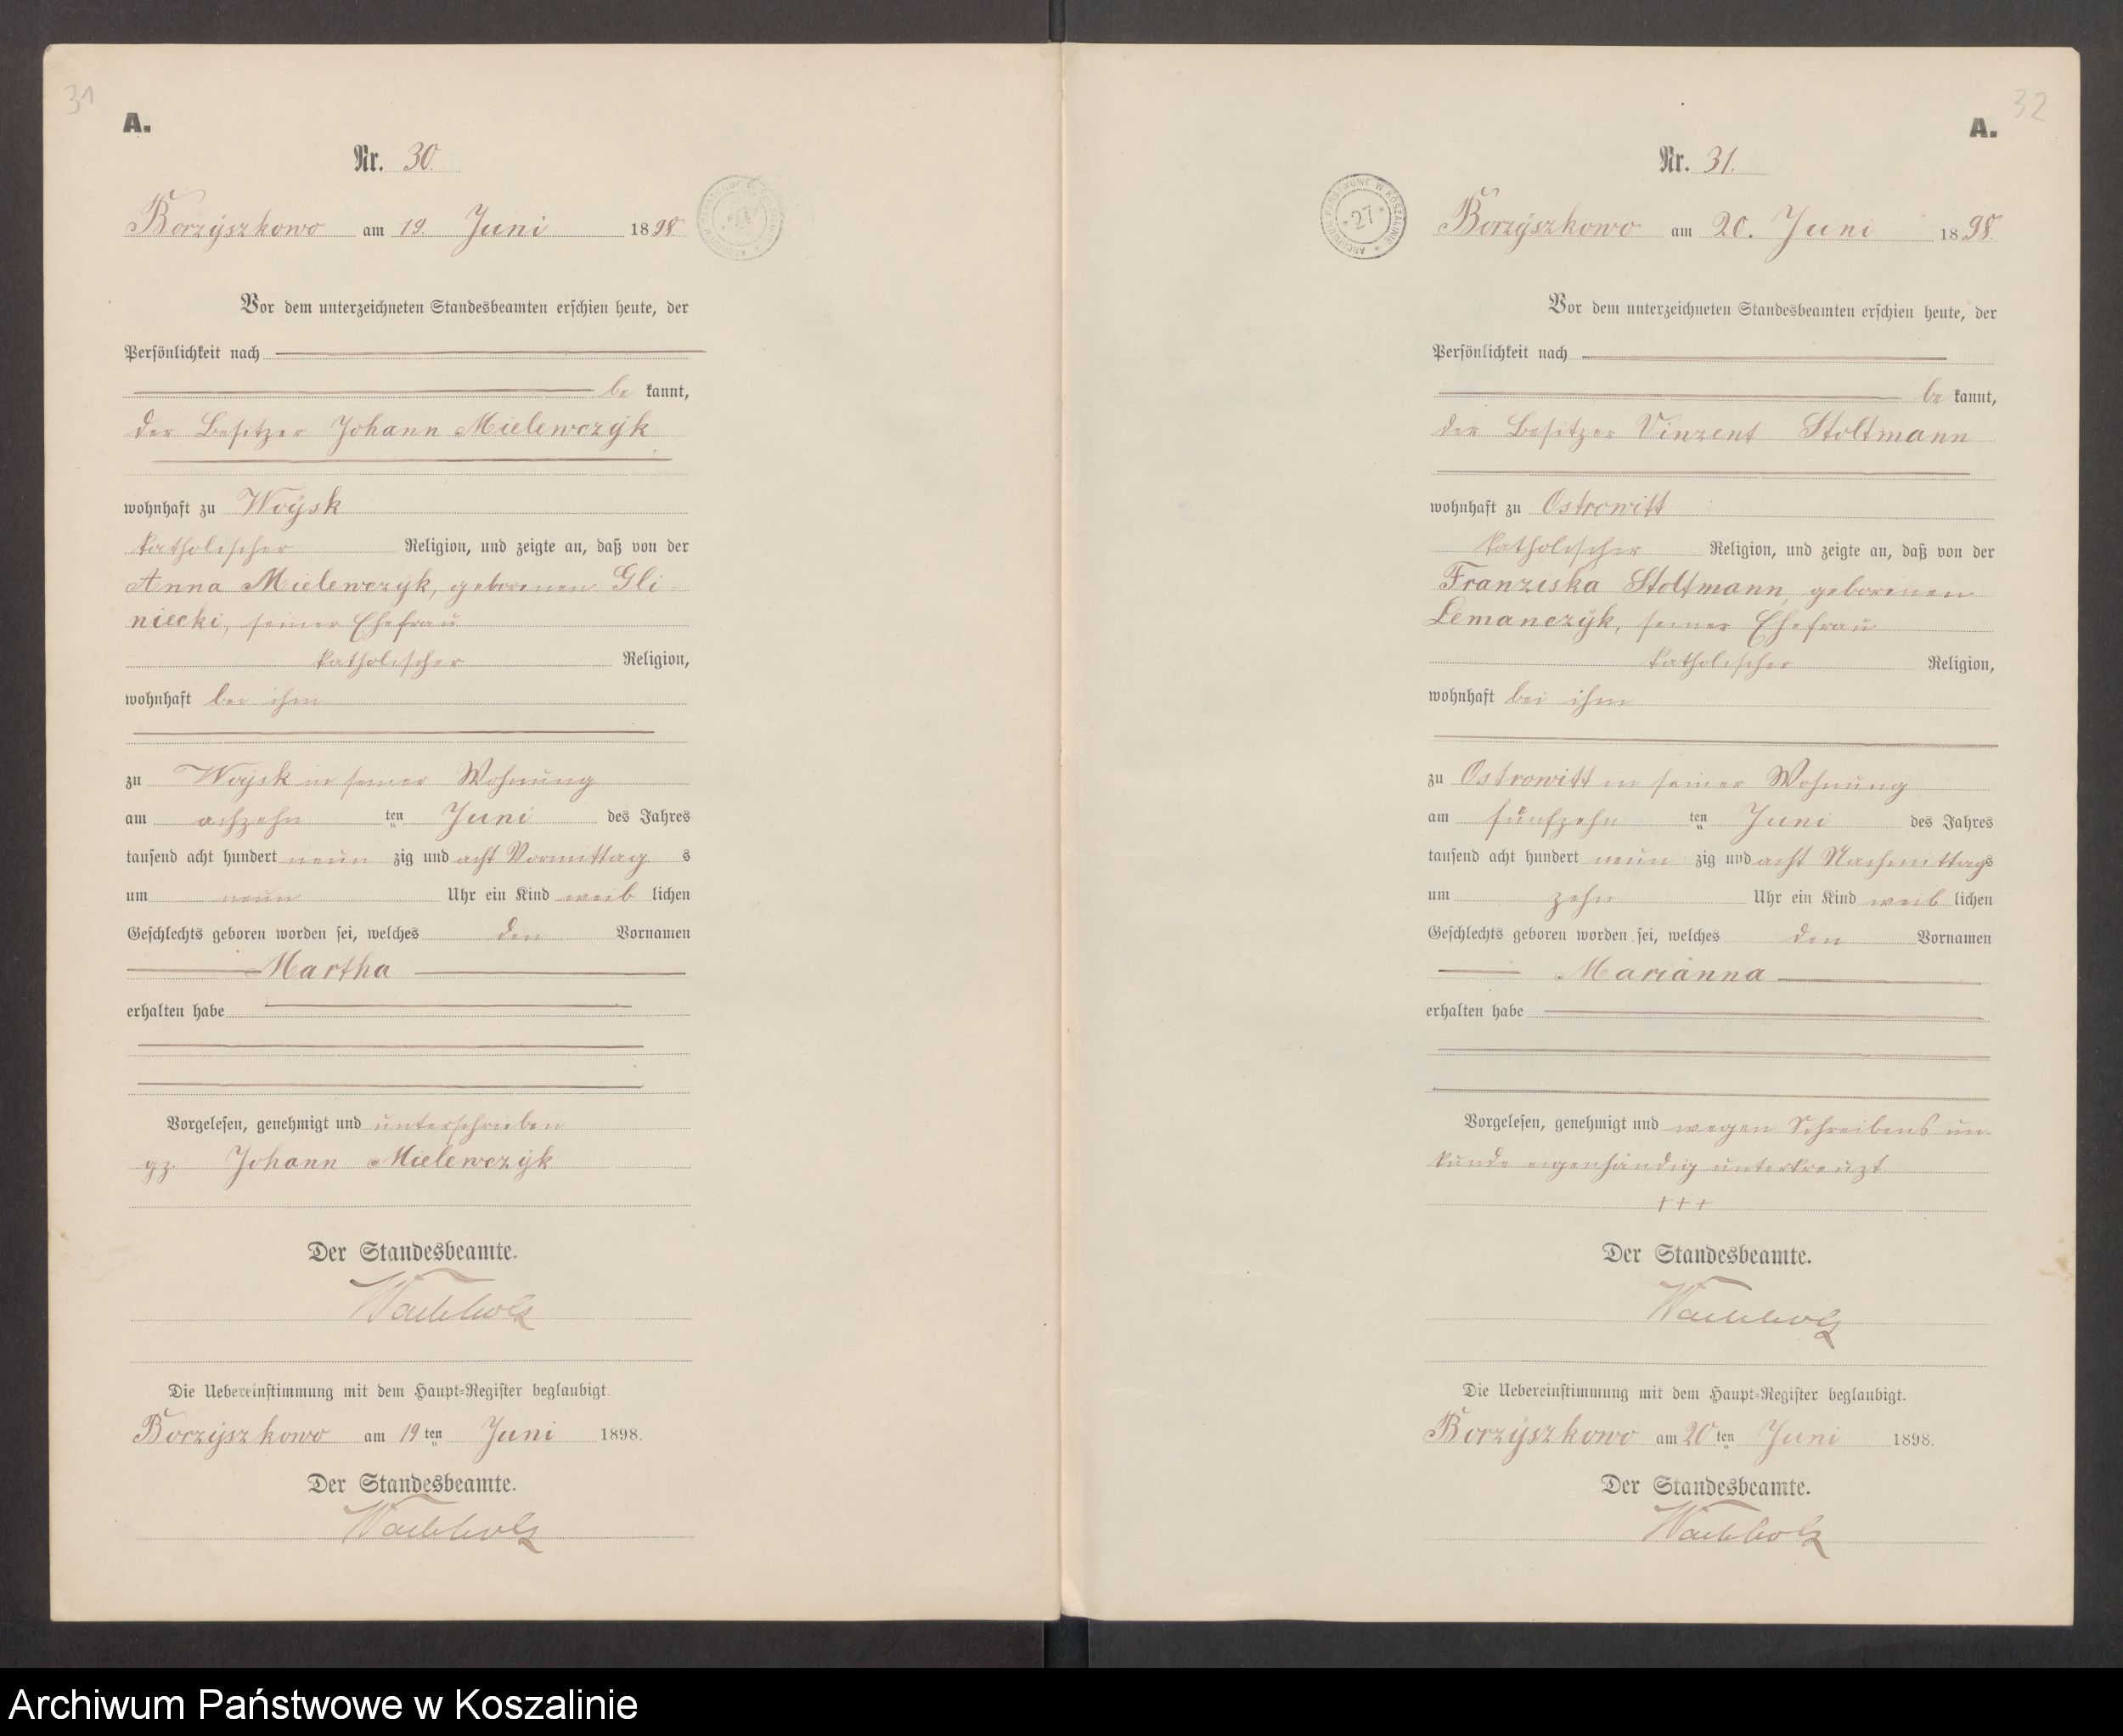 31
A.
Nr. 30.
Borzyszkowo am 19. Juni 1898
Vor dem unterzeichneten Standesbeamten erschien heute, der
Persönlichkeit nach
be kannt,
der Besitzer Johann Mielewczyk
wohnhaft zu Woysk
katholischer Religion, und zeigte an, daß von der
Anna Mielewczyk, geborenen Gli-
niecki, seiner Ehefrau
katholischer Religion,
wohnhaft bei ihm
zu Woysk in seiner Wohnung
am achzehn ten Juni des Jahres
tausend acht hundert neun zig und acht Vormittag s
um neun Uhr ein Kind weib lichen
Geschlechts geboren worden sei, welches den Vornamen
Martha
erhalten habe
Vorgelesen, genehmigt und unterschrieben
gz. Johann Mielewczyk
Der Standesbeamte.
Wachholz
Die Uebereinstimmung mit dem Haupt-Register beglaubigt.
Borzyszkowo am 19 ten Juni 1898.
Der Standesbeamte.
Wachholz
32
A.
Nr. 31.
ARCHIWUM PAŃSTWOWE W KOSZALINIE * 27 *
Borzyszkowo am 20. Juni 1898.
Vor dem unterzeichneten Standesbeamten erschien heute, der
Persönlichkeit nach
be kannt,
der Besitzer Vinzent Stoltmann
wohnhaft zu Ostrowitt
katholischer Religion, und zeigte an, daß von der
Franziska Stoltmann, geborenen
Lemanczyk, seiner Ehefrau
katholischer Religion,
wohnhaft bei ihm
zu Ostrowitt in seiner Wohnung
am fünfzehn ten Juni des Jahres
tausend acht hundert neun zig und acht Nachmittags
um zehn Uhr ein Kind weib lichen
Geschlechts geboren worden sei, welches den Vornamen
Marianna
erhalten habe
Vorgelesen, genehmigt und wegen Schreibens un-
kunde eigenhändig unterkreuzt
+++
Der Standesbeamte.
Wachholz
Die Uebereinstimmung mit dem Haupt-Register beglaubigt.
Borzyszkowo am 20 ten Juni 1898.
Der Standesbeamte.
Wachholz
Archiwum Państwowe w Koszalinie